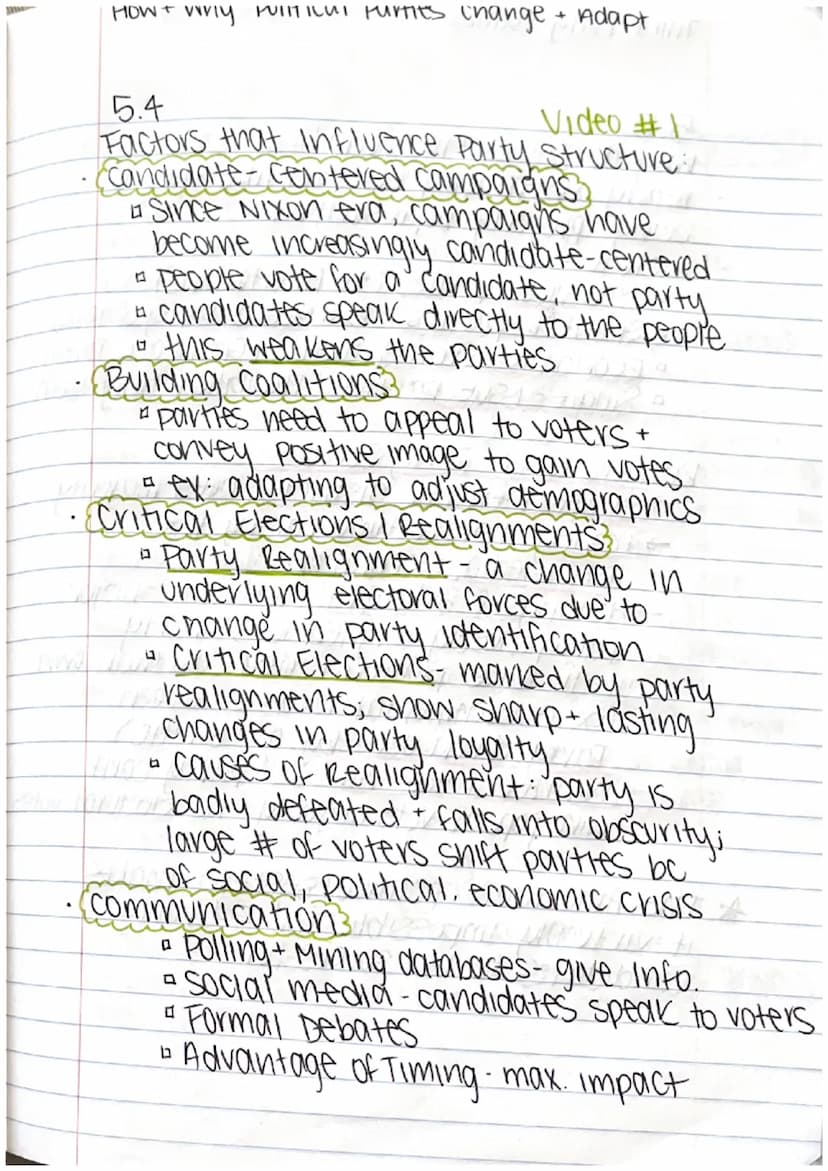 How + Why Political Parties Change + Adapt
5.4
Video #1
Factors that Influence Party Structure:
· Candidate-Centered Campaigns
▫ Since Nixon era, campaigns have
become increasingly candidate-centered
▫ people vote for a candidate, not party
▫ candidates speak directly to the people
▫ this weakens the parties
· Building Coalitions
▫ parties need to appeal to voters +
convey positive image to gain votes
▫ ex: adapting to adjust demographics
· Critical Elections | Realignments
▫ Party Realignment - a change in
underlying electoral forces due to
change in party identification
▫ Critical Elections- marked by party
realignments; show sharp + lasting
changes in party loyalty
▫ causes of Realignment: party is
badly defeated + falls into obscurity;
large # of voters shift parties bc
of social, political, economic crisis
· Communication
▫ Polling + Mining databases- give info.
▫ Social media - candidates speak to voters
▫ Formal Debates
▫ Advantage of Timing - max. impact